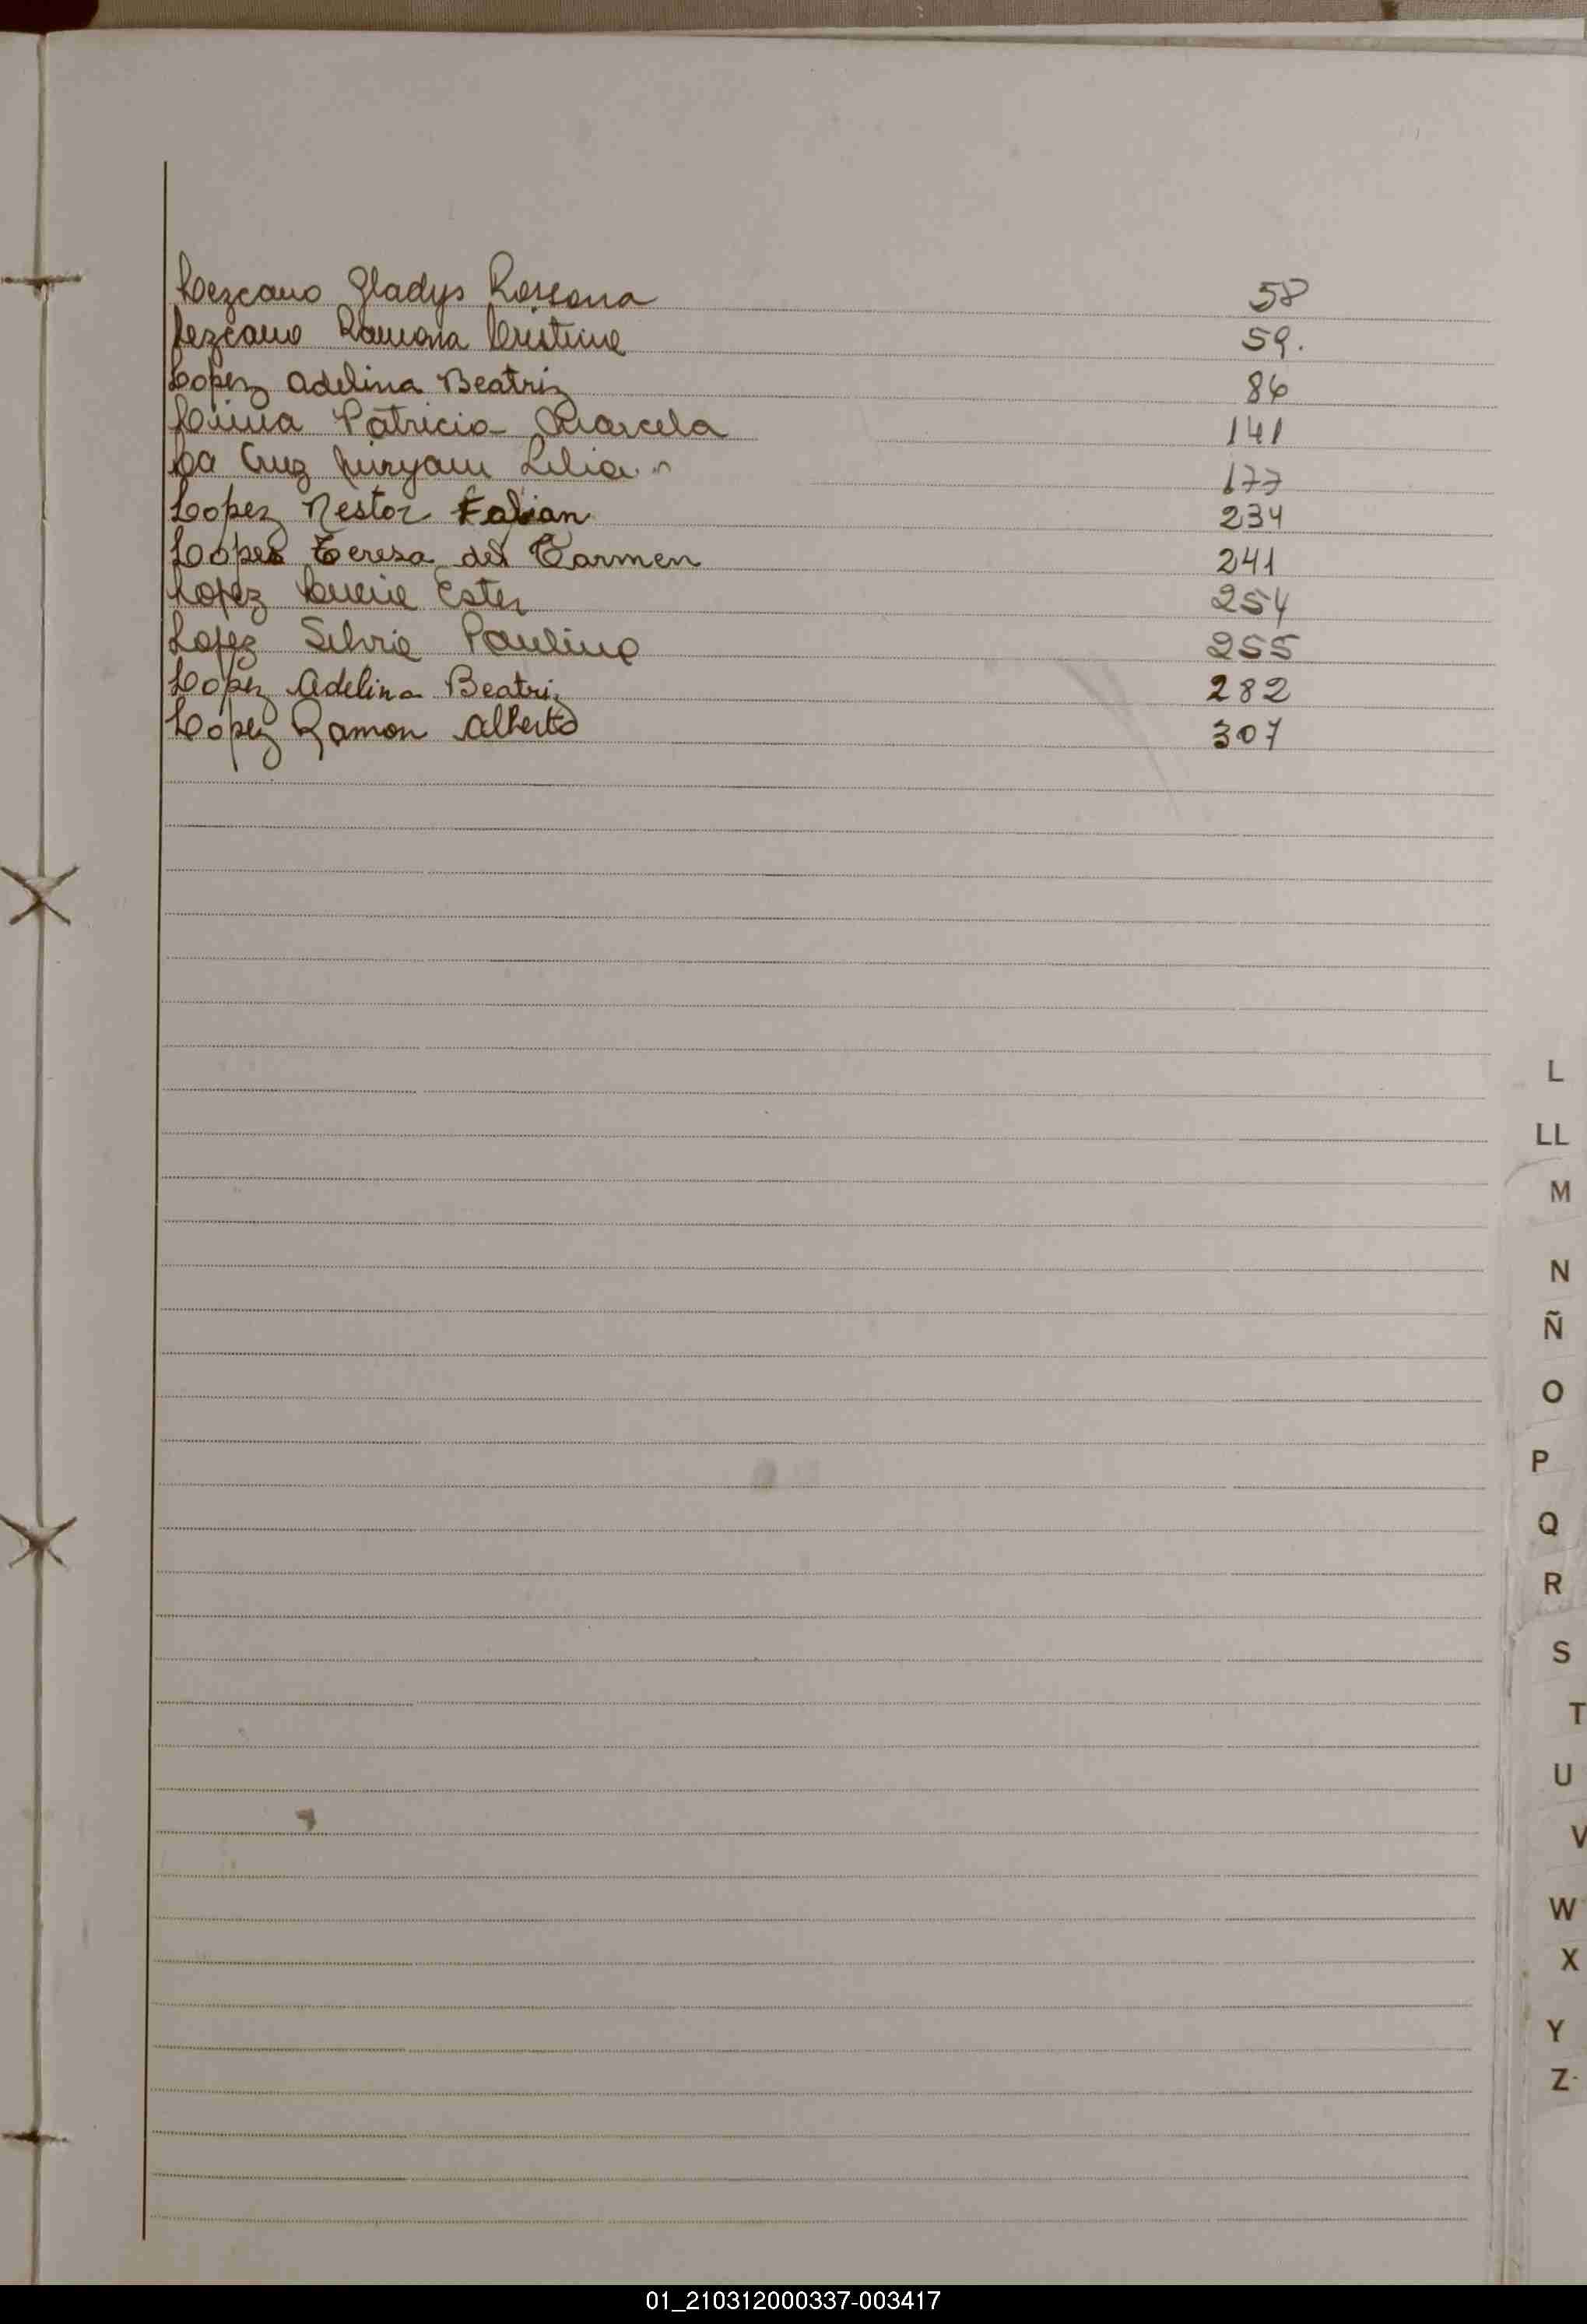 Lezcano Gladys Rossana 58
Lezcano Ramona Cristina 59.
Lopez Adelina Beatriz 86
Patricia Marcela 141
La Cruz Miryam Lilian 177
Lopez Nestor Fabian 234
Lopez Teresa del Carmen 241
Lopez Ester 254
Lopez Silvia Paulina 255
Lopez Adelina Beatriz 282
Lopez Ramon Alberto 307
L
LL
M
N
Ñ
O
P
Q
R
S
T
U
V
W
X
Y
Z
01_210312000337-003417